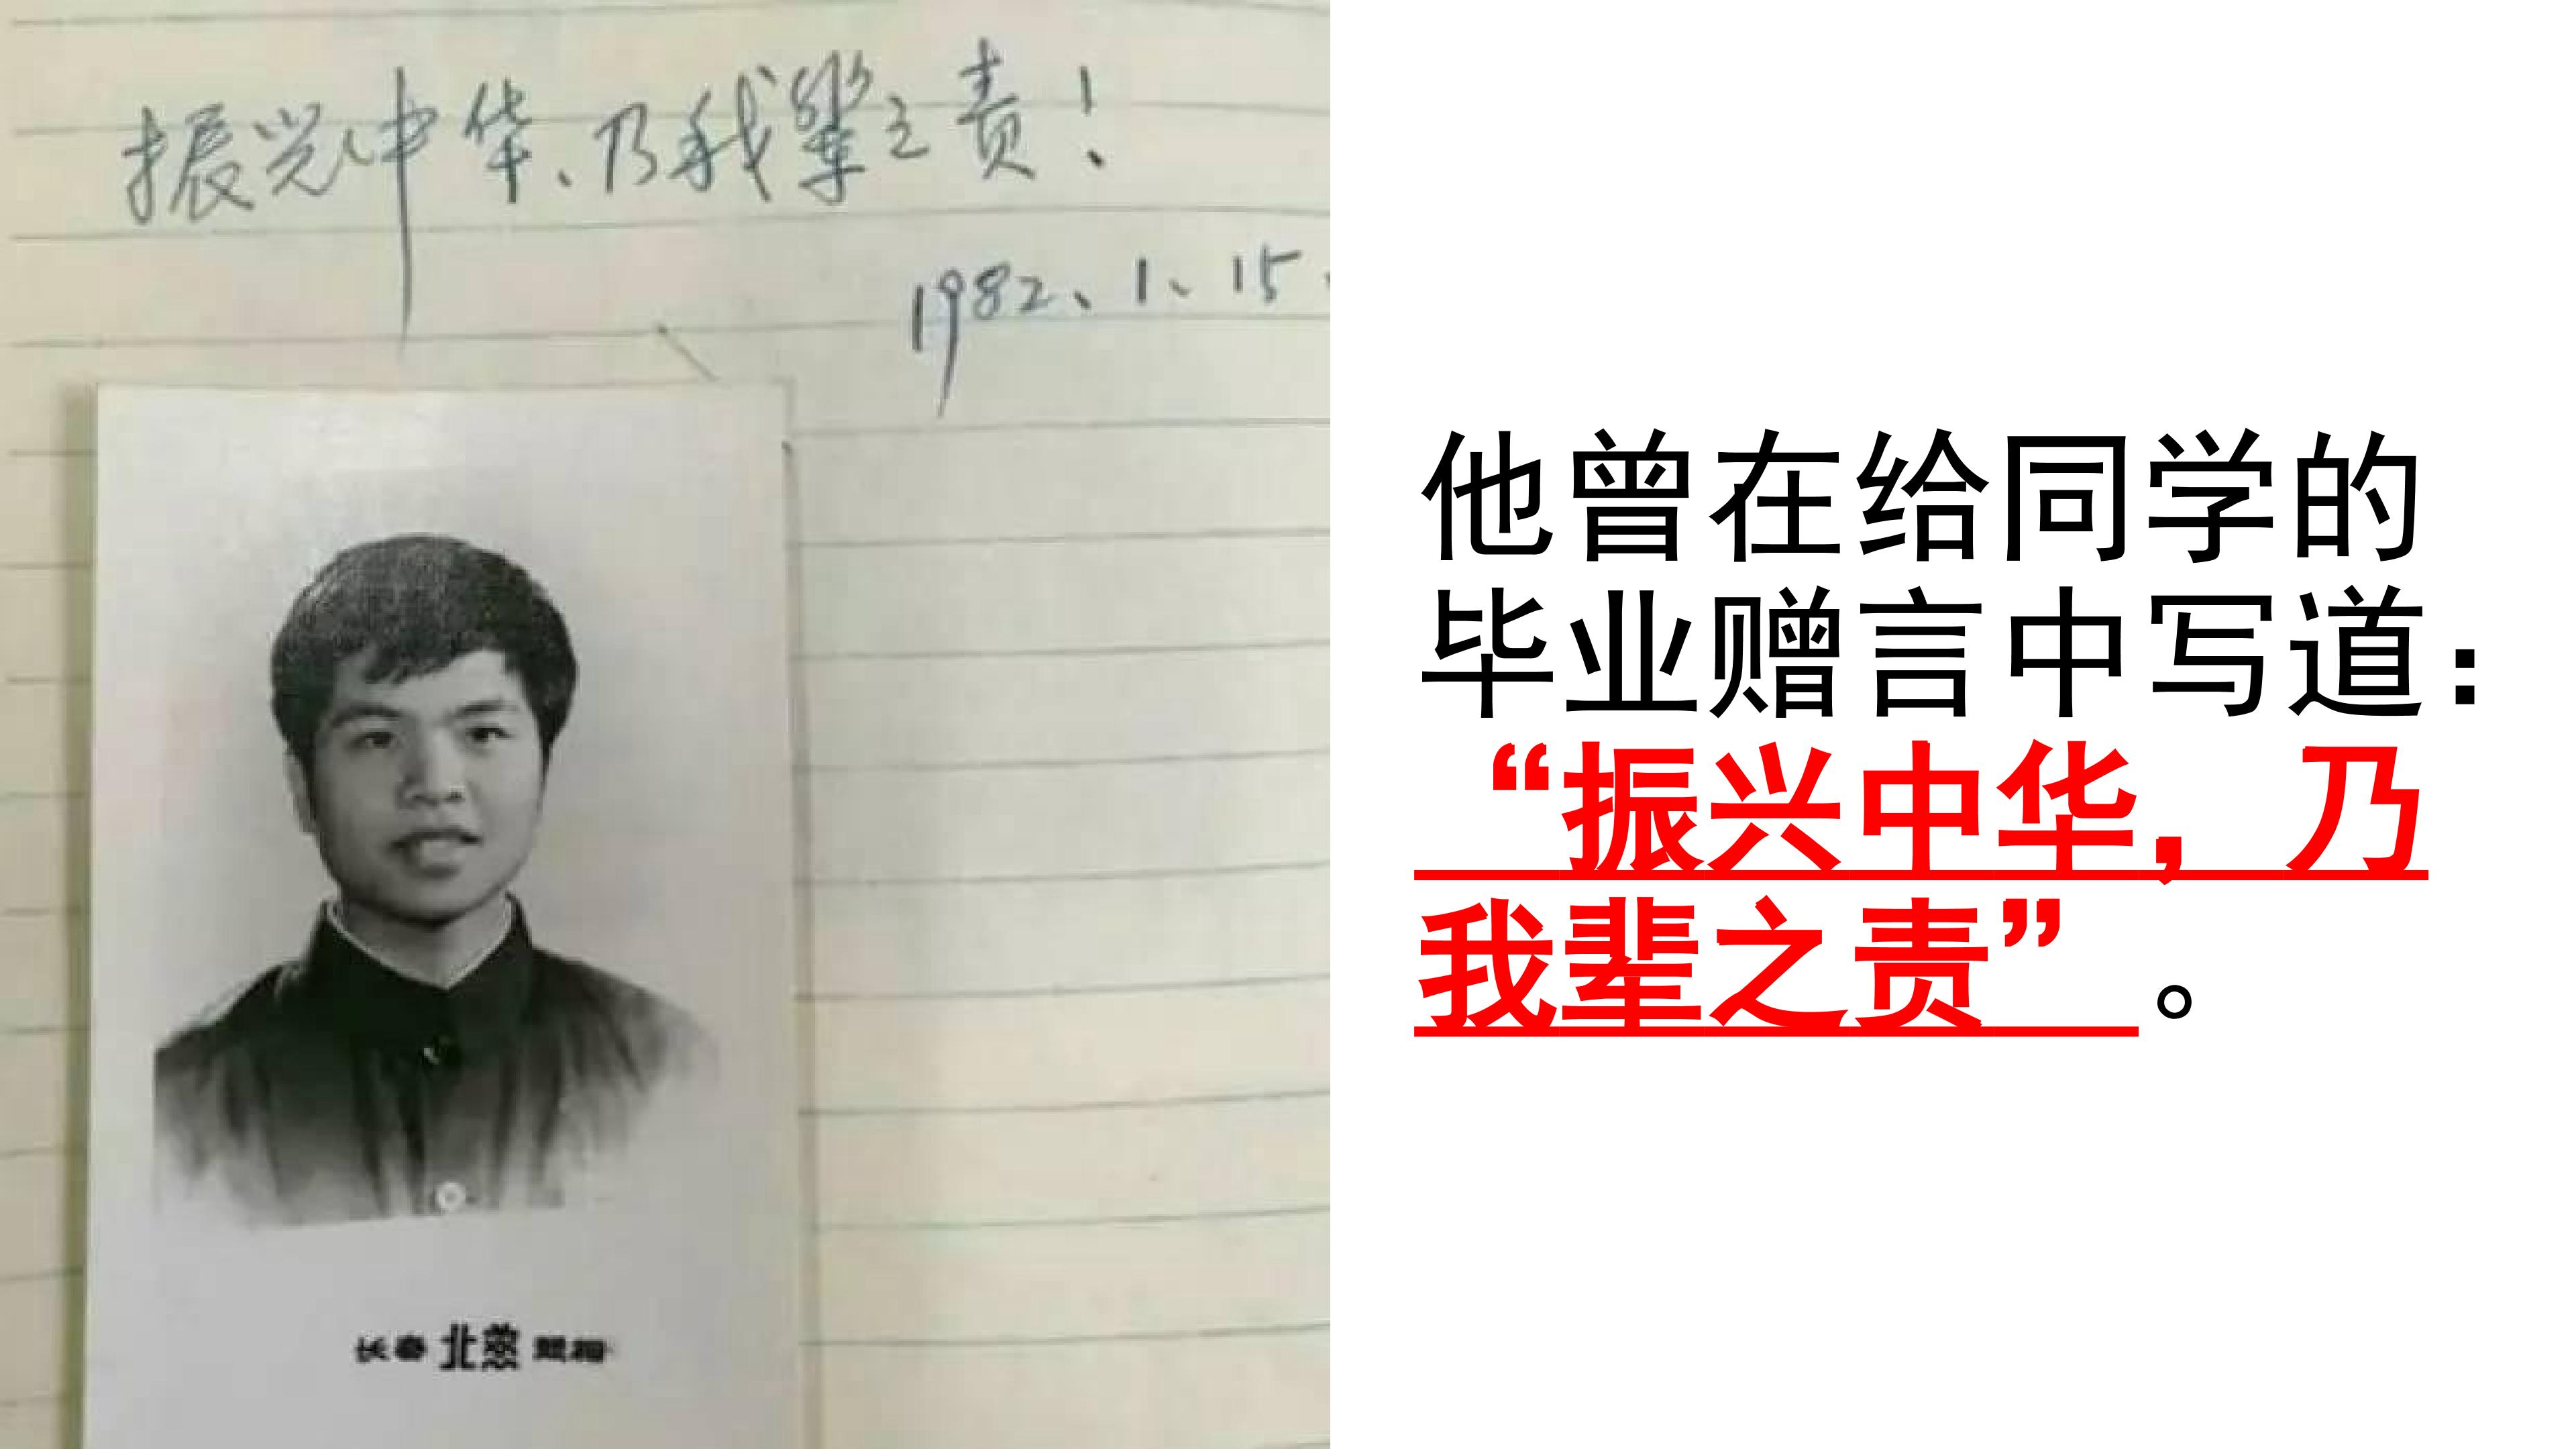 振兴中华、乃我辈之责！
1982、1、15.
长春 北燕 照相
他曾在给同学的
毕业赠言中写道：
“振兴中华，乃
我辈之责”。